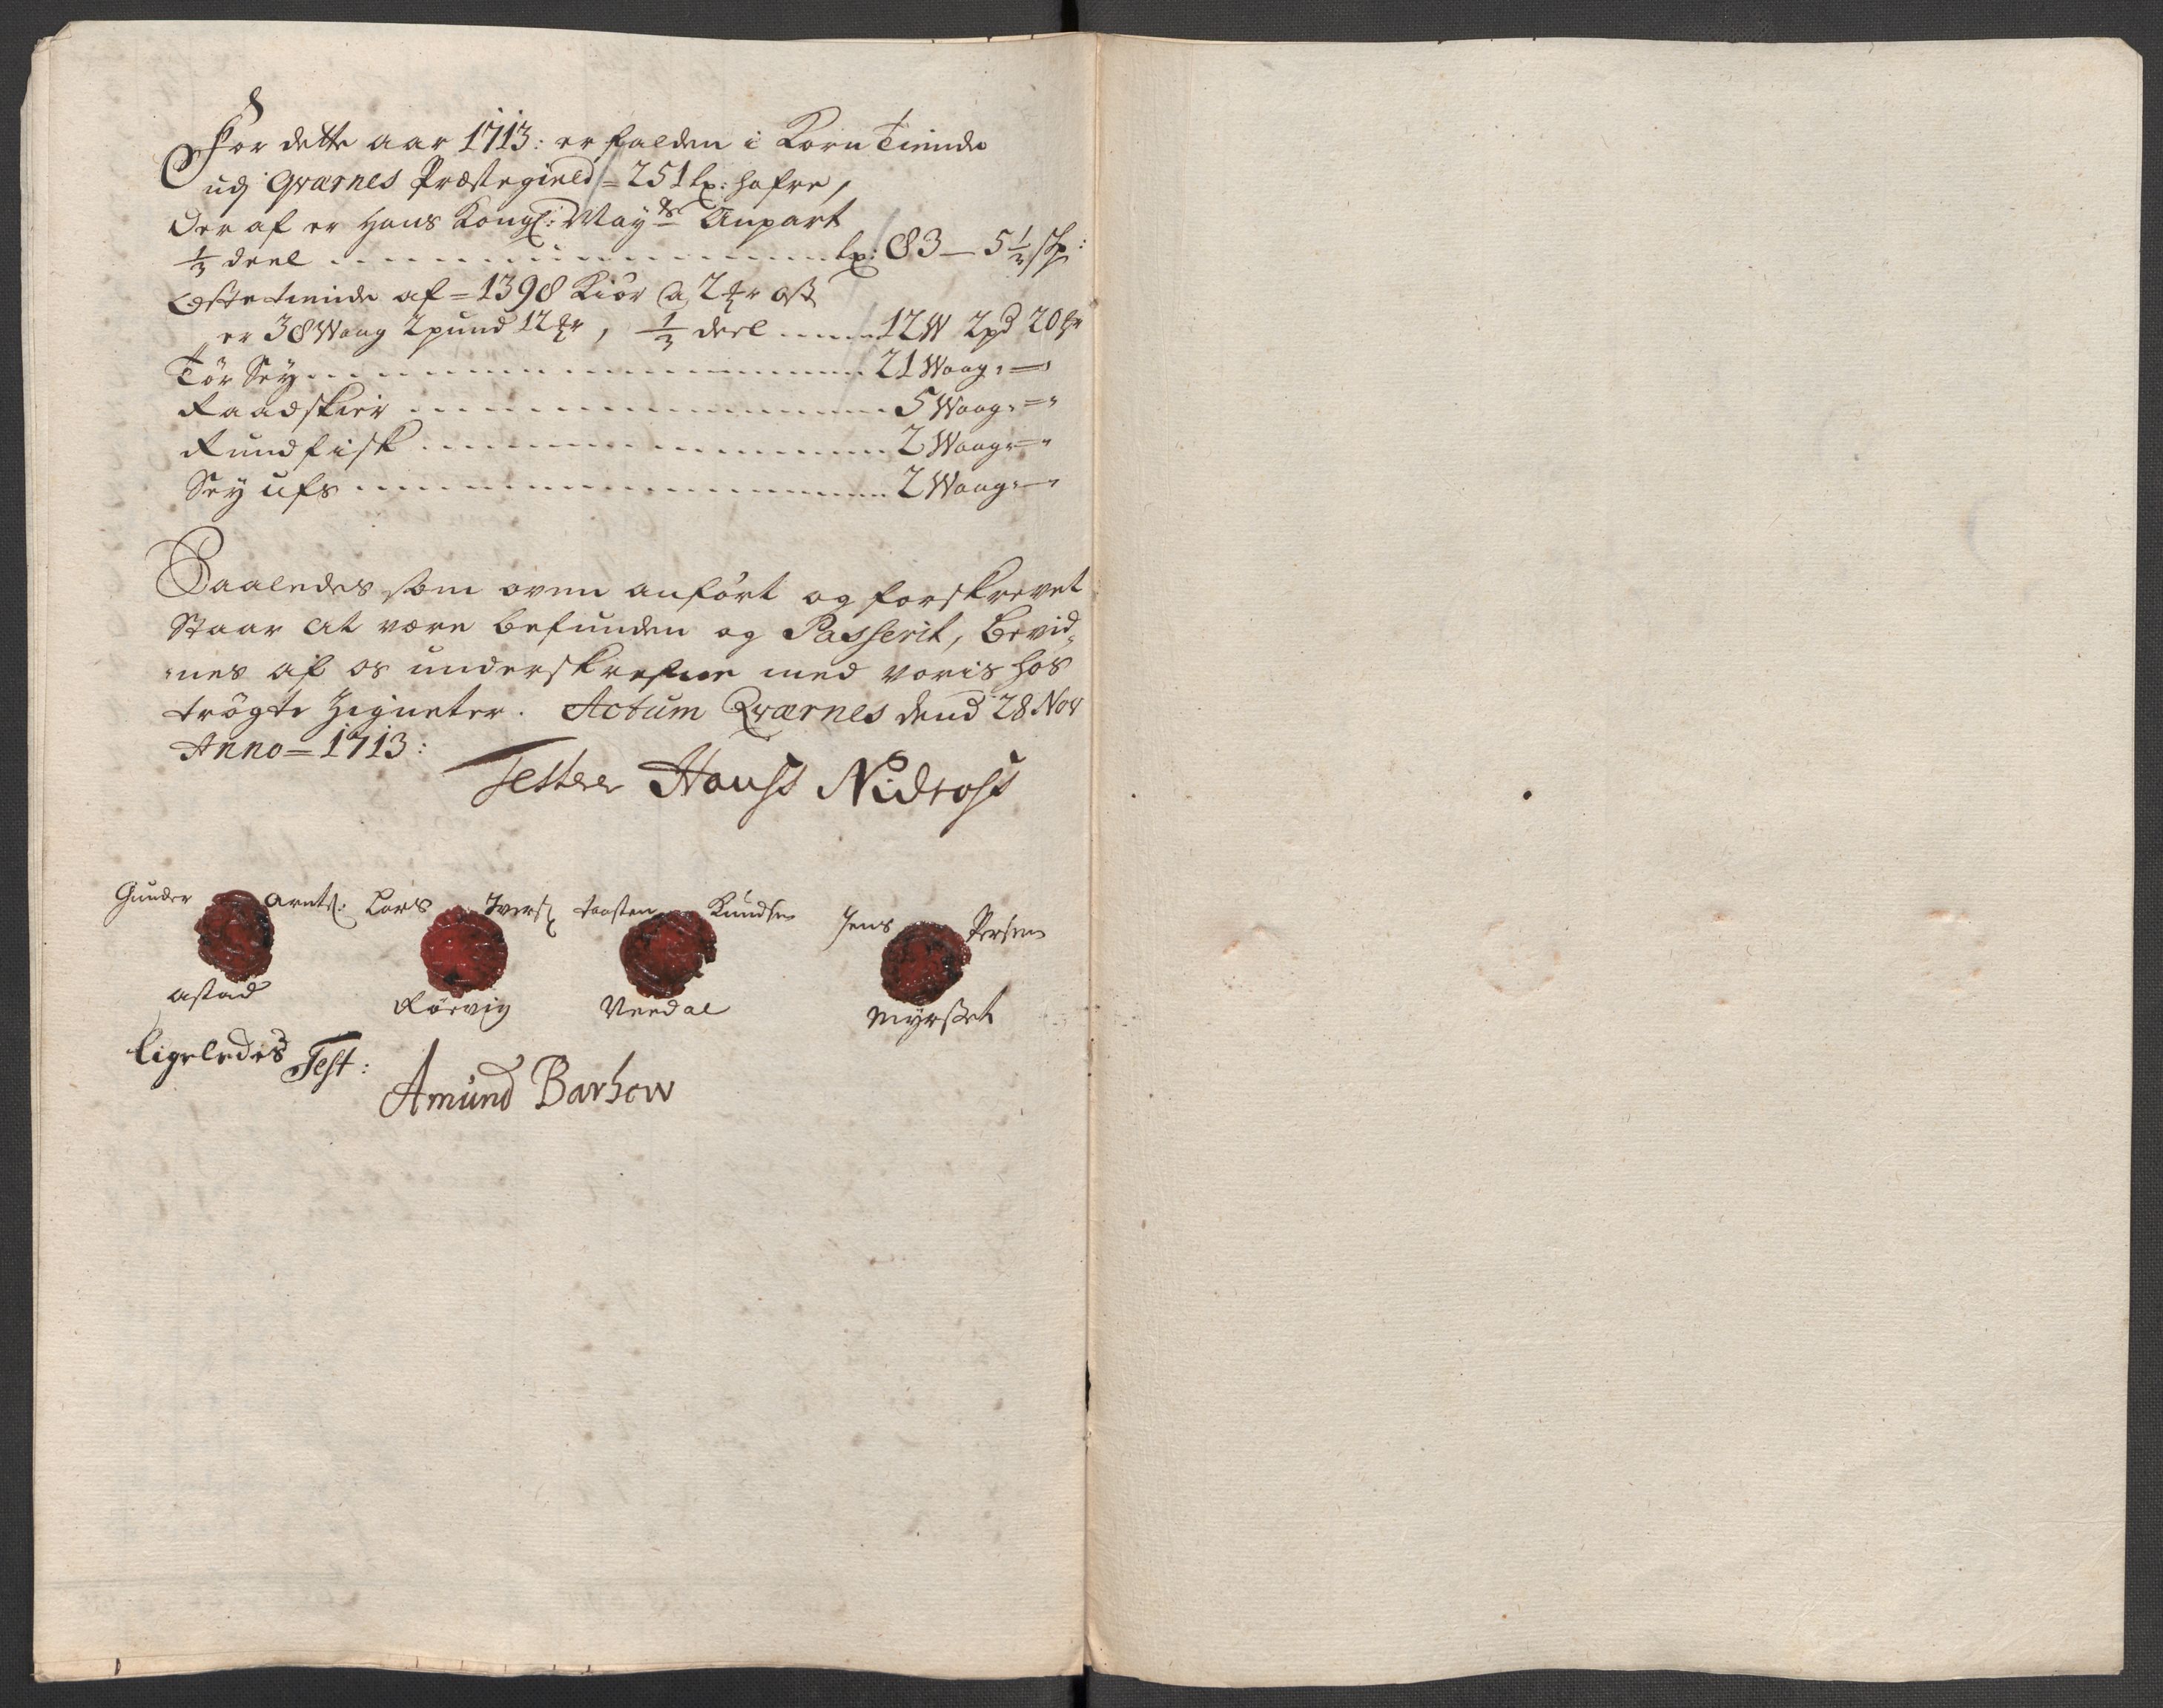 For dette aar 1713: er falden i Korn Tiende
udj Qværnes Præstegield = 251 lp: hafre,
Der af er Hans Kongl: Mayts Anpart
1/3 deel lp: 83 — 5 1/3
Oste tiende af = 1398 Kiör a 2 ost
er 38 Waag 2 pund 12, 1/3 deel 12 W 2 pd 20
Tör Sey 21 Waag
Raadskier 5 Waag
Rundfisk 2 Waag
Sey ufs 2 Waag
Saaledes som oven anfört og forskrevet
Staar at være befunden og Passerit, bevid
nes af os underskrefne med voris hos
trögte Zigneter. Actum Qværnes dend 28 Nov
Anno = 1713:
Tester Hanss Nidross
Gunder Arnts: Lars Ivers Taasten Knudsen Jens Persen
astad Rörvig Veedal Myrset
Ligeledes Test:
Amund Barhow